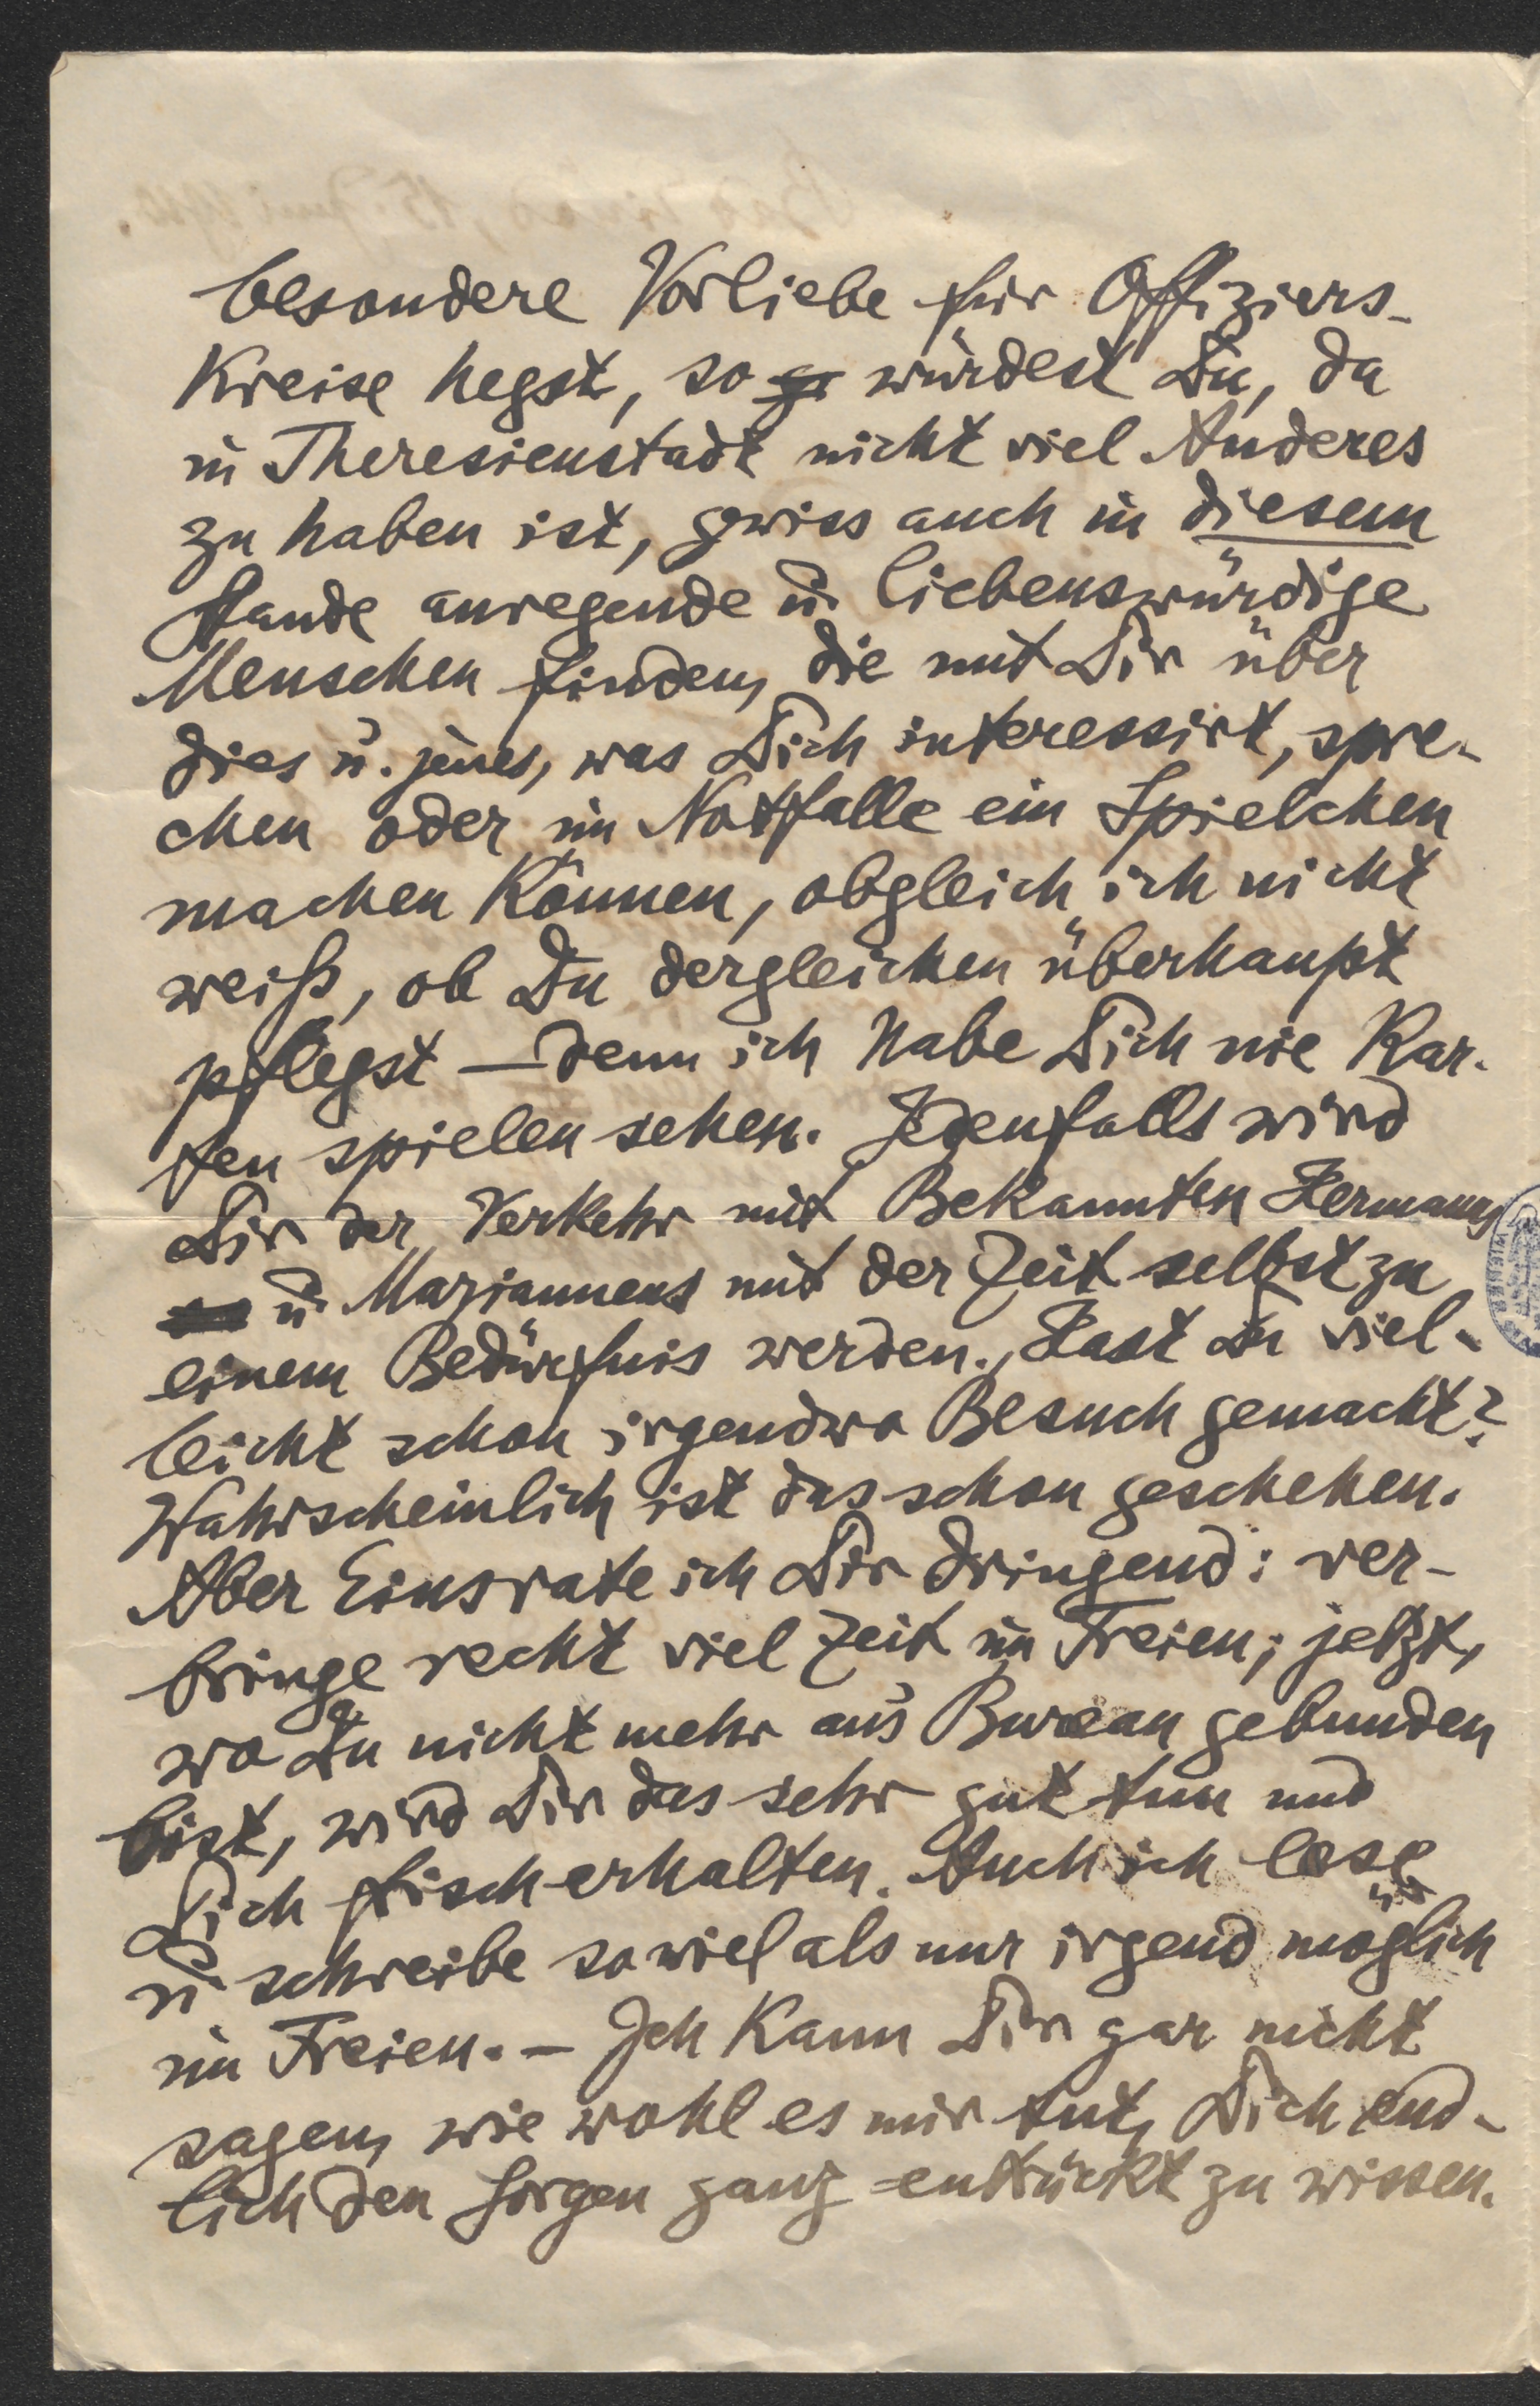 besondere Vorliebe für Offiziers-
Kreise hegst, so würdest Du, da
in Theresienstadt nicht viel Anderes
zu haben ist, gewiss auch in diesem
Stande anregende u. liebenswürdige
Menschen finden, die mit Dir über
dies u. jenes, was Dich interessirt, spre-
chen oder im Notfalle ein Spielchen
machen können, obgleich ich nicht
weiß, ob Du dergleichen überhaupt
pflegst — denn ich habe Dich nie Kar-
ten spielen sehen. Jedenfalls wird
Dir der Verkehr mit Bekannten Hermanns
u. Mariannens mit der Zeit selbst zu
einem Bedürfnis werden. Hast Du viel-
leicht schon irgendwo Besuch gemacht?
Wahrscheinlich ist das schon geschehen.
Aber Eins rate ich Dir dringend: ver-
bringe recht viel Zeit im Freien; jetzt,
wo Du nicht mehr an's Bureau gebunden
bist, wird Dir das sehr gut tun und
Dich frisch erhalten. Auch ich lese
u. schreibe soviel als nur irgend möglich
im Freien. — Ich kann Dir gar nicht
sagen, wie wohl es mir tut, Dich end-
lich den Sorgen ganz entrückt zu wissen.